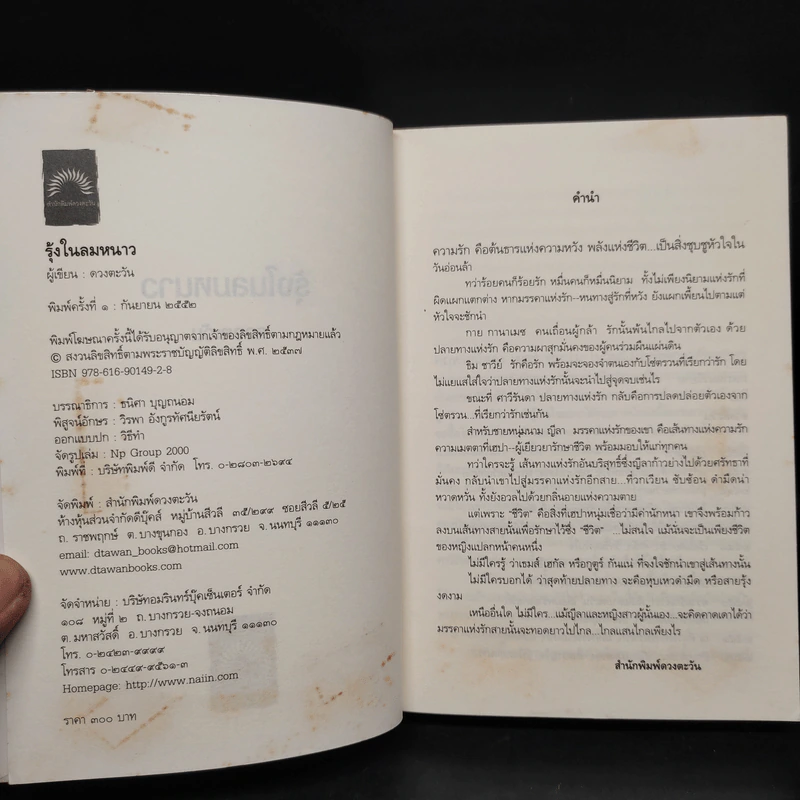 สำนักพิมพ์ดวงตะวัน
รุ้งในลมหนาว
ผู้เขียน : ดวงตะวัน
พิมพ์ครั้งที่ ๑ : กันยายน ๒๕๕๒
พิมพ์โฆษณาครั้งนี้ได้รับอนุญาตจากเจ้าของลิขสิทธิ์ตามกฎหมายแล้ว
© สงวนลิขสิทธิ์ตามพระราชบัญญัติลิขสิทธิ์ พ.ศ. ๒๕๓๗
ISBN 978-616-90149-2-8
บรรณาธิการ : ธนิศา บุญถนอม
พิสูจน์อักษร : วิรพา อังกูรทัศนียรัตน์
ออกแบบปก : วิธีทำ
จัดรูปเล่ม : Np Group 2000
พิมพ์ที่ : บริษัทพิมพ์ดี จำกัด โทร. ๐-๒๘๐๓-๒๖๙๔
จัดพิมพ์ : สำนักพิมพ์ดวงตะวัน
ห้างหุ้นส่วนจำกัดดีบุ๊คส์ หมู่บ้านสีวลี ๓๕/๒๙๙ ซอยสีวลี ๕/๒๕
ถ. ราชพฤกษ์ ต.บางขุนกอง อ.บางกรวย จ.นนทบุรี ๑๑๑๓๐
email: dtawan_books@hotmail.com
www.dtawanbooks.com
จัดจำหน่าย : บริษัทอมรินทร์บุ๊คเซ็นเตอร์ จำกัด
๑๐๘ หมู่ที่ ๒ ถ.บางกรวย-จงถนอม
ต.มหาสวัสดิ์ อ.บางกรวย จ.นนทบุรี ๑๑๑๓๐
โทร. ๐-๒๔๒๓-๙๙๙๙
โทรสาร ๐-๒๔๔๙-๙๕๖๑-๓
Homepage: http://www.naiin.com
ราคา ๓๐๐ บาท
คำนำ
ความรัก คือต้นธารแห่งความหวัง พลังแห่งชีวิต...เป็นสิ่งชุบชูหัวใจใน
วันอ่อนล้า
ทว่าร้อยคนก็ร้อยรัก หมื่นคนก็หมื่นนิยาม ทั้งไม่เพียงนิยามแห่งรักที่
ผิดแผกแตกต่าง หากมรรคาแห่งรัก--หนทางสู่รักที่หวัง ยังแผกเพี้ยนไปตามแต่
หัวใจจะชักนำ
กาย กานาเมซ คนเถื่อนผู้กล้า รักนั้นพ้นไกลไปจากตัวเอง ด้วย
ปลายทางแห่งรัก คือความผาสุกมั่นคงของผู้คนร่วมผืนแผ่นดิน
ธิม ซาวีย์ รักคือรัก พร้อมจะจองจำตนเองกับโซ่ตรวนที่เรียกว่ารัก โดย
ไม่แยแสใส่ใจว่าปลายทางแห่งรักนั้นจะนำไปสู่จุดจบเช่นไร
ขณะที่ ศาวีรันดา ปลายทางแห่งรัก กลับคือการปลดปล่อยตัวเองจาก
โซ่ตรวน...ที่เรียกว่ารักเช่นกัน
สำหรับชายหนุ่มนาม ญีลา มรรคาแห่งรักของเขา คือเส้นทางแห่งความรัก
ความเมตตาที่เฮปา--ผู้เยียวยารักษาชีวิต พร้อมมอบให้แก่ทุกคน
ทว่าใครจะรู้ เส้นทางแห่งรักอันบริสุทธิ์ซึ่งญีลาก้าวย่างไปด้วยศรัทธาที่
มั่นคง กลับนำเขาไปสู่มรรคาแห่งรักอีกสาย...ที่วกเวียน ซับซ้อน ดำมืดน่า
หวาดหวั่น ทั้งยังอวลไปด้วยกลิ่นอายแห่งความตาย
แต่เพราะ "ชีวิต" คือสิ่งที่เฮปาหนุ่มเชื่อว่ามีค่านักหนา เขาจึงพร้อมก้าว
ลงบนเส้นทางสายนั้นเพื่อรักษาไว้ซึ่ง "ชีวิต" ...ไม่สนใจ แม้นั่นจะเป็นเพียงชีวิต
ของหญิงแปลกหน้าคนหนึ่ง
ไม่มีใครรู้ ว่าเธมส์ เฮกัล หรือกูตูร์ กันแน่ ที่จงใจชักนำเขาสู่เส้นทางนั้น
ไม่มีใครบอกได้ ว่าสุดท้ายปลายทาง จะคือหุบเหวดำมืด หรือสายรุ้ง
งดงาม
เหนืออื่นใด ไม่มีใคร...แม้ญีลาและหญิงสาวผู้นั้นเอง...จะคิดคาดเดาได้ว่า
มรรคาแห่งรักสายนั้นจะทอดยาวไปไกล...ไกลแสนไกลเพียงไร
สำนักพิมพ์ดวงตะวัน